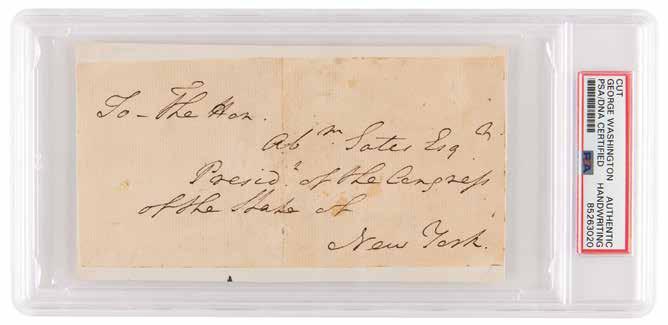 To - The Hon.
Abm Yates Esqr
Presidt of the Congress
of the State of
New York.
CUT
GEORGE WASHINGTON AUTHENTIC
PSA/DNA CERTIFIED HANDWRITING
PSA 85263020